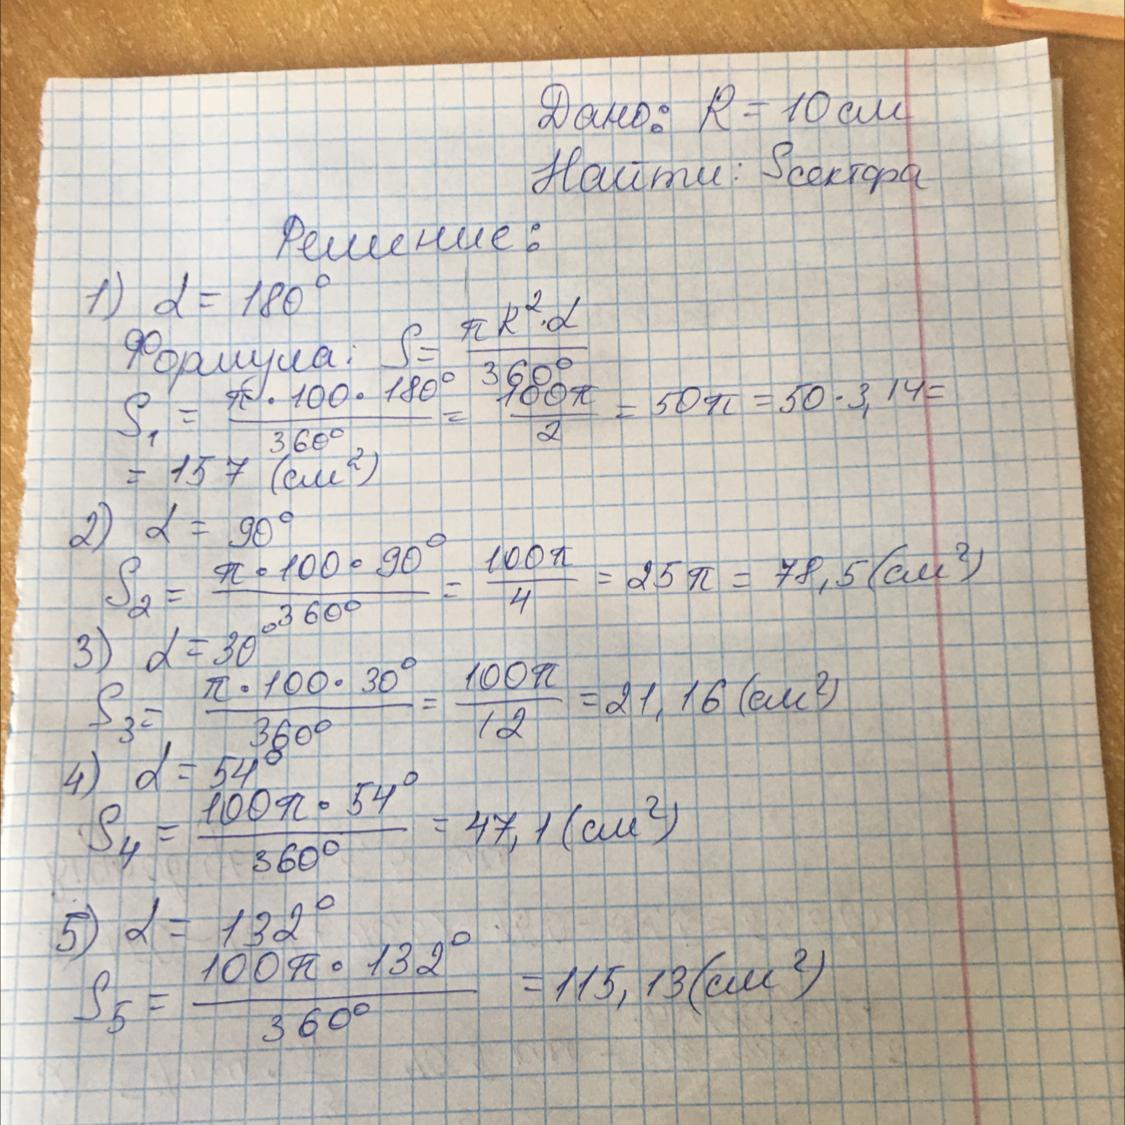 Дано: R = 10 см
Найти: Sсектора
Решение:
1) α = 180°
Формула: S = πR²·α / 360°
S₁ = π·100·180° / 360° = 100π / 2 = 50π = 50·3,14 =
= 157 (см²)
2) α = 90°
S₂ = π·100·90° / 360° = 100π / 4 = 25π = 78,5 (см²)
3) α = 30°
S₃ = π·100·30° / 360° = 100π / 12 = 21,16 (см²)
4) α = 54°
S₄ = 100π·54° / 360° = 47,1 (см²)
5) α = 132°
S₅ = 100π·132° / 360° = 115,13 (см²)